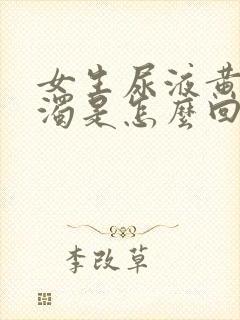 女生尿液黄
濁是怎麼回
李改草